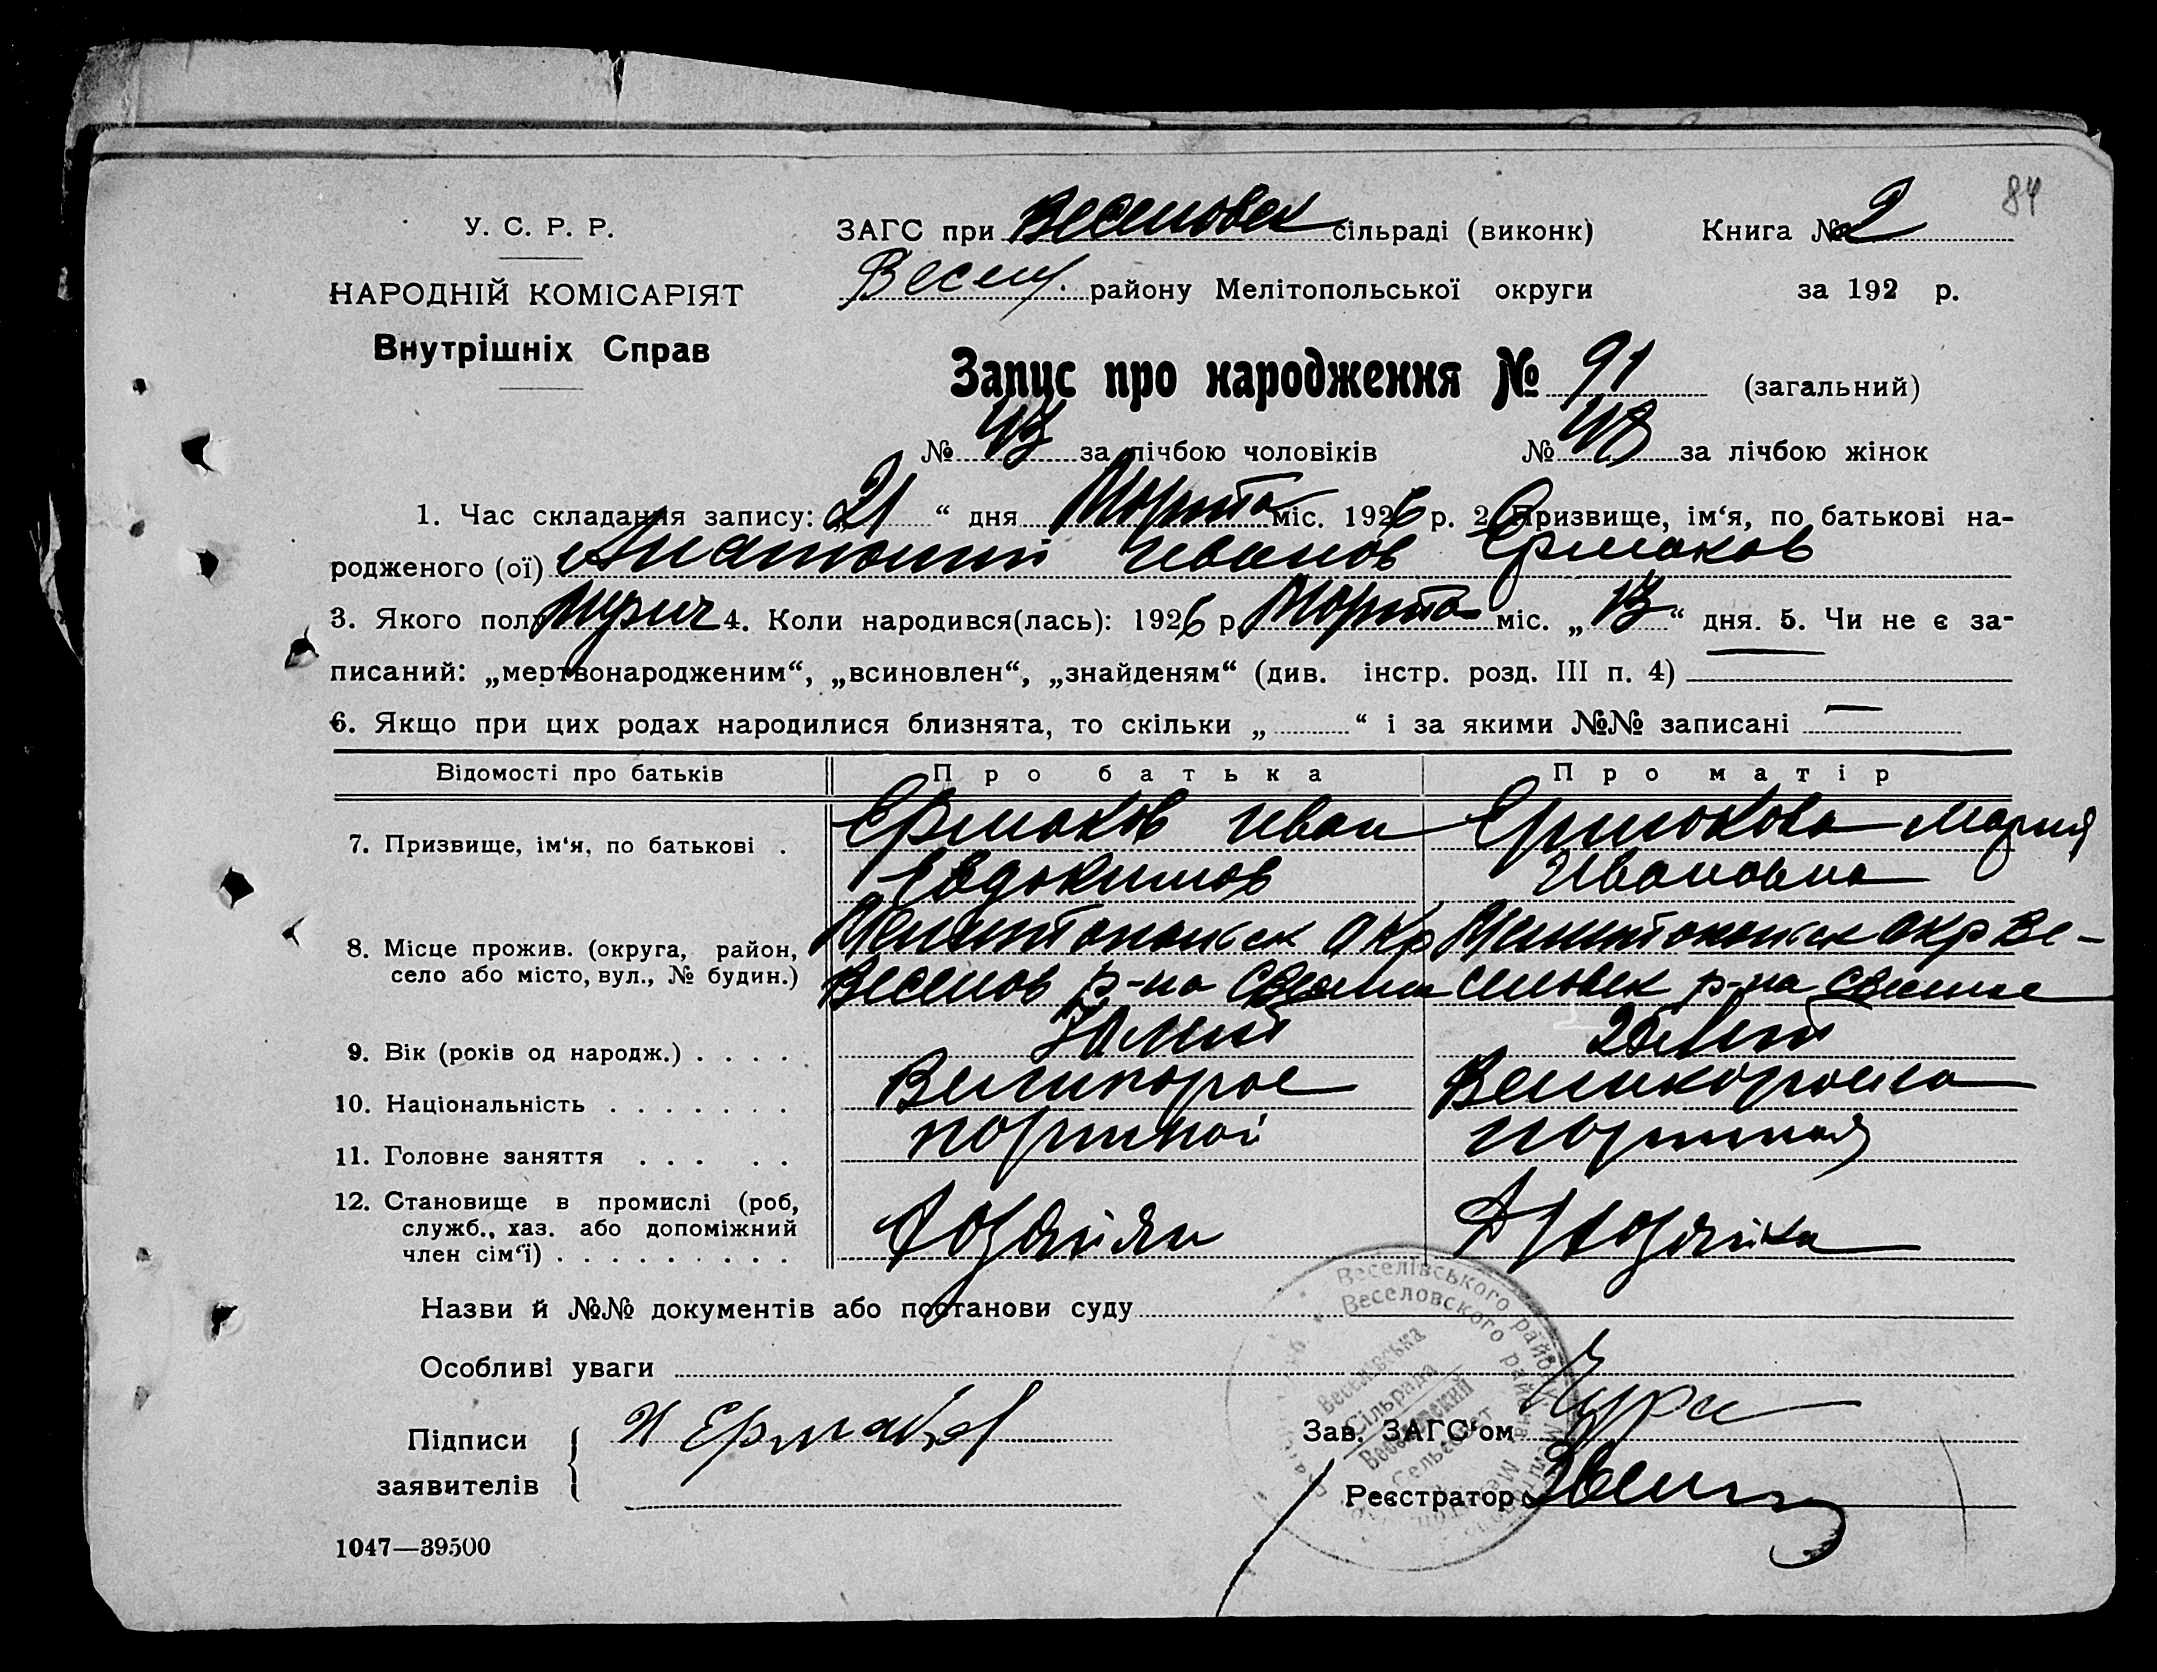 84
У. С. Р. Р.
НАРОДНІЙ КОМІСАРІЯТ
Внутрішніх Справ
ЗАГС при Веселовск сільраді (виконк) Книга № 2
Весел. району Мелітопольської округи за 192 р.
Запис про народження № 91 (загальний)
№ 43 за лічбою чоловіків № 48 за лічбою жінок
1. Час складання запису: 21 “ дня Марта міс. 1926 р. 2. Призвище, ім‘я, по батькові на-
родженого (ої) Анатолий Иванов Ермаков
3. Якого пола мужск 4. Коли народився(лась): 1926 р. Марта міс. „ 13 “ дня. 5. Чи не є за-
писаний: „мертвонародженим“, „всиновлен“, „знайденям“ (див. інстр. розд. III п. 4) —
6. Якщо при цих родах народилися близнята, то скільки „ “ і за якими №№ записані —
Відомості про батьків Про батька Про матір
7. Призвище, ім‘я, по батькові . Ермаков Иван Ермакова Мария
Евдокимов Ивановна
8. Місце прожив. (округа, район, Мелитопольск окр Мелитопольск окр Ве-
село або місто, вул., № будин.) Веселов р-на селовск р-на
9. Вік (років од народж.) . . . . лет лет
10. Національність . . . . . . . Великорос Великоросска
11. Головне заняття . . . . .
12. Становище в промислі (роб, служб., хаз. або допоміжний член сім‘ї) . . . . . . . . . Хозяин Д Хозяйка
Назви й №№ документів або постанови суду
Особливі уваги
Підписи заявителів И Ермаков
Зав. ЗАГС‘ом
Реєстратор
Веселівського району
Веселовского района
Веселівська
Сільрада
Веселовский
Сельсовет
1047—39500